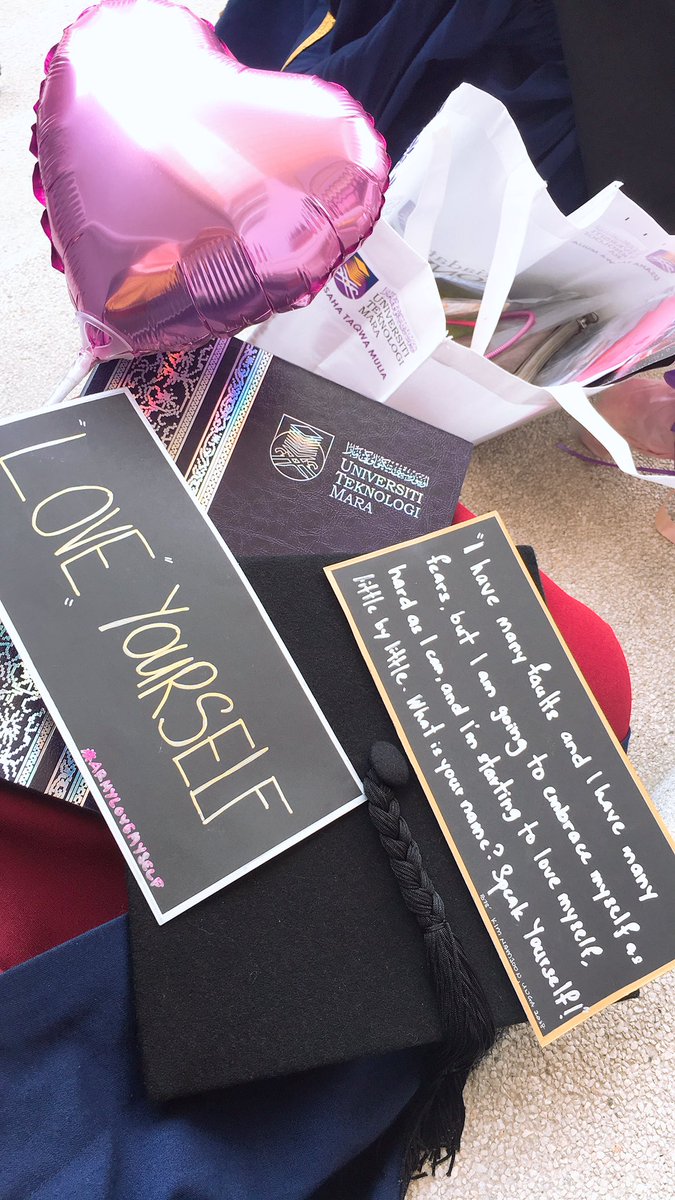 "LOVE" "YOURSELF"
#ARMYLOVEMYSELF
"I have many faults and I have many
fears, but I am going to embrace myself as
hard as I can, and I'm starting to love myself,
little by little. What is your name? Speak Yourself!"
UNIVERSITI
TEKNOLOGI
MARA
UNIVERSITI
TEKNOLOGI
MARA
USAHA TAQWA MULIA